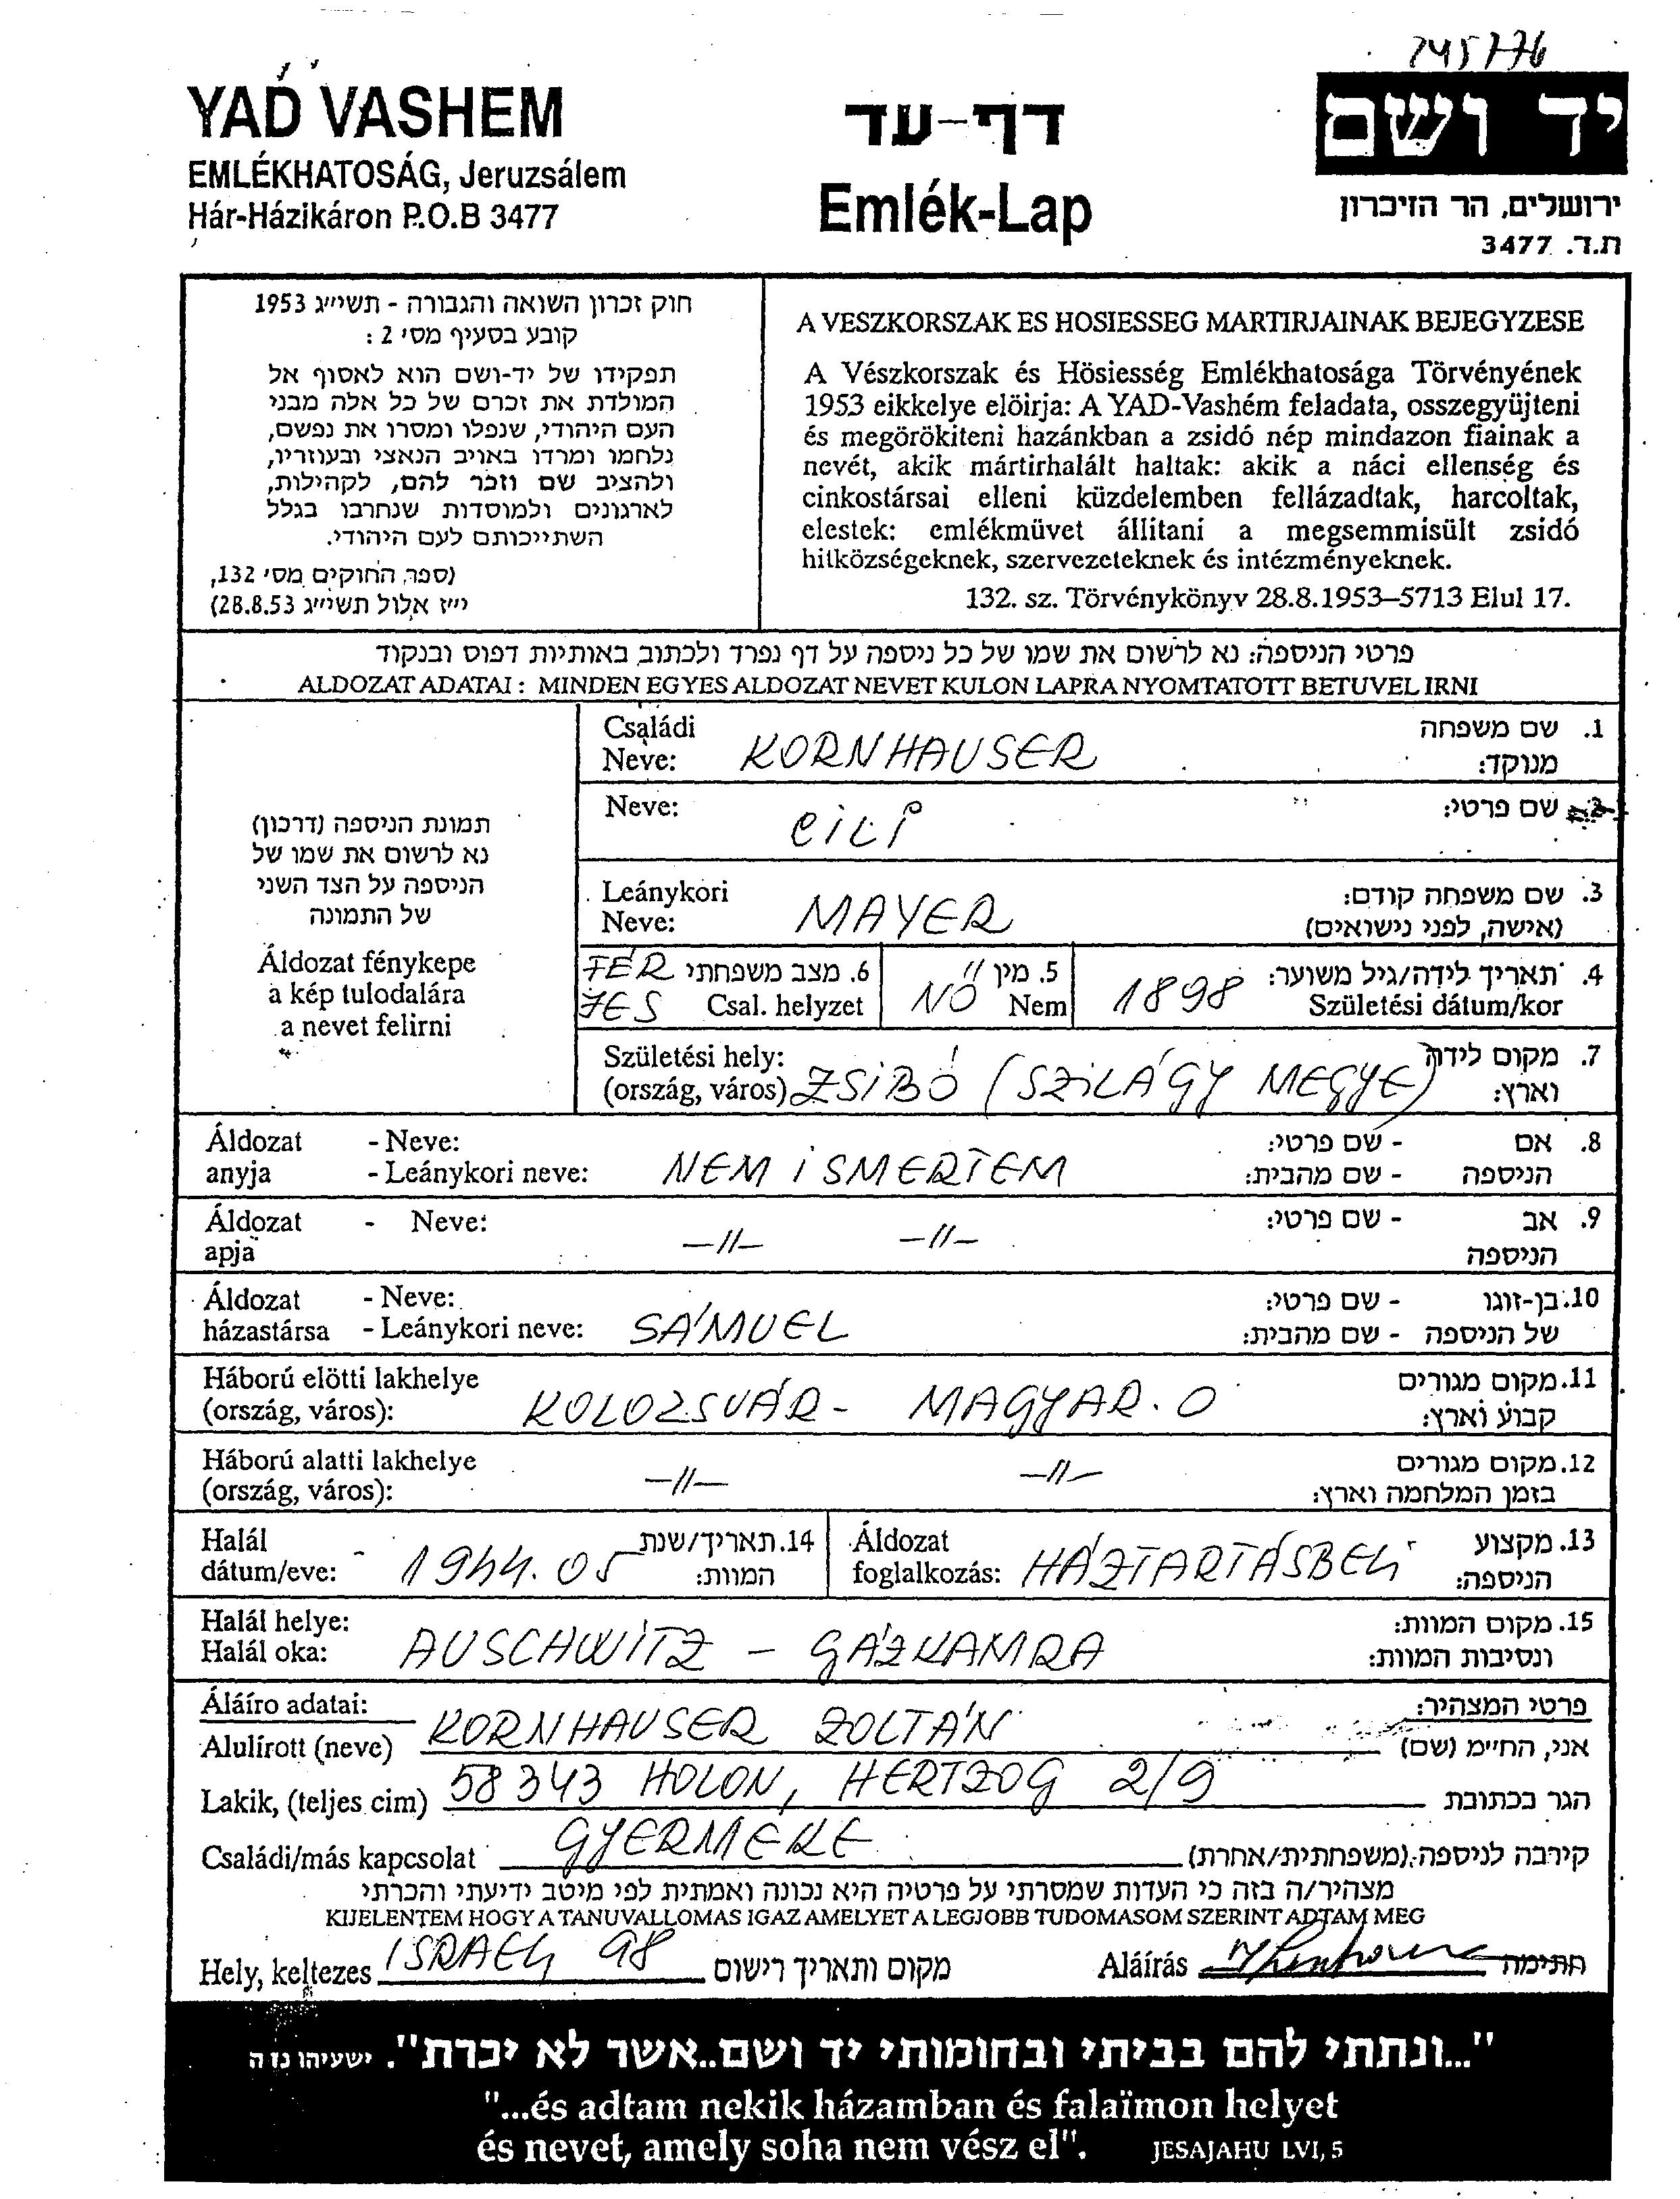 745776
YAD VASHEM
EMLÉKHATOSÁG, Jeruzsálem
Hár-Házikáron P.O.B 3477
דף-עד
Emlék-Lap
יד ושם
ירושלים, הר הזיכרון
ת.ד. 3477
חוק זכרון השואה והגבורה - תשי״ג 1953
קובע בסעיף מס׳ 2 :
תפקידו של יד-ושם הוא לאסוף אל
המולדת את זכרם של כל אלה מבני
העם היהודי, שנפלו ומסרו את נפשם,
נלחמו ומרדו באויב הנאצי ובעוזריו,
ולהציב שם וזכר להם, לקהילות,
לארגונים ולמוסדות שנחרבו בגלל
השתייכותם לעם היהודי.
(ספר החוקים מס׳ 132,
י״ז אלול תשי״ג 28.8.53)
A VESZKORSZAK ES HOSIESSEG MARTIRJAINAK BEJEGYZESE
A Vészkorszak és Hösiesség Emlékhatosága Törvényének
1953 eikkelye elöirja: A YAD-Vashém feladata, osszegyüjteni
és megörökiteni hazánkban a zsidó nép mindazon fiainak a
nevét, akik mártirhalált haltak: akik a náci ellenség és
cinkostársai elleni küzdelemben fellázadtak, harcoltak,
elestek: emlékmüvet állitani a megsemmisült zsidó
hitközségeknek, szervezeteknek és intézményeknek.
132. sz. Törvénykönyv 28.8.1953–5713 Elul 17.
פרטי הניספה: נא לרשום את שמו של כל ניספה על דף נפרד ולכתוב באותיות דפוס ובנקוד
ALDOZAT ADATAI : MINDEN EGYES ALDOZAT NEVET KULON LAPRA NYOMTATOTT BETUVEL IRNI
תמונת הניספה (דרכון)
נא לרשום את שמו של
הניספה על הצד השני
של התמונה
Áldozat fénykepe
a kép tulodalára
a nevet felirni
Családi
Neve: KORNHAUSER
1. שם משפחה
מנוקד:
Neve: CILI
שם פרטי:
Leánykori
Neve: MAYER
3. שם משפחה קודם:
(אישה, לפני נישואים)
FÉR 6. מצב משפחתי
JES Csal. helyzet
5. מין
NŐ Nem
1898 4. תאריך לידה/גיל משוער:
Születési dátum/kor
Születési hely:
(ország, város) ZSIBÓ (SZILÁGY MEGYE)
7. מקום לידה
וארץ:
Áldozat - Neve:
anyja - Leánykori neve: NEM ISMERTEM
8. אם - שם פרטי:
הניספה - שם מהבית:
Áldozat - Neve:
apja —//— —//—
9. אב - שם פרטי:
הניספה
Áldozat - Neve:
házastársa - Leánykori neve: SÁMUEL
10. בן-זוגו - שם פרטי:
של הניספה - שם מהבית:
Háború elötti lakhelye
(ország, város): KOLOZSVÁR - MAGYAR.O
11. מקום מגורים
קבוע וארץ:
Háború alatti lakhelye
(ország, város): —//— —//—
12. מקום מגורים
בזמן המלחמה וארץ:
Halál
dátum/eve: 1944.05
14. תאריך/שנת
המוות:
Áldozat
foglalkozás: HÁZTARTÁSBELI
13. מקצוע
הניספה:
Halál helye:
Halál oka: AUSCHWITZ – GÁZKAMRA
15. מקום המוות:
ונסיבות המוות:
Áláíro adatai:
פרטי המצהיר:
Alulírott (neve) KORNHAUSER ZOLTÁN אני, החי״מ (שם)
Lakik, (teljes cim) 58343 HOLON, HERTZOG 2/9 הגר בכתובת
Családi/más kapcsolat GYERMEKE קירבה לניספה (משפחתית/אחרת)
מצהיר/ה בזה כי העדות שמסרתי על פרטיה היא נכונה ואמתית לפי מיטב ידיעתי והכרתי
KIJELENTEM HOGY A TANUVALLOMAS IGAZ AMELYET A LEGJOBB TUDOMASOM SZERINT ADTAM MEG
Hely, keltezes ISRAEL 98 מקום ותאריך רישום
Aláírás חתימה
"...ונתתי להם בביתי ובחומותי יד ושם..אשר לא יכרת". ישעיהו נו ה
"...és adtam nekik házamban és falaïmon helyet
és nevet, amely soha nem vész el". JESAJAHU LVI, 5